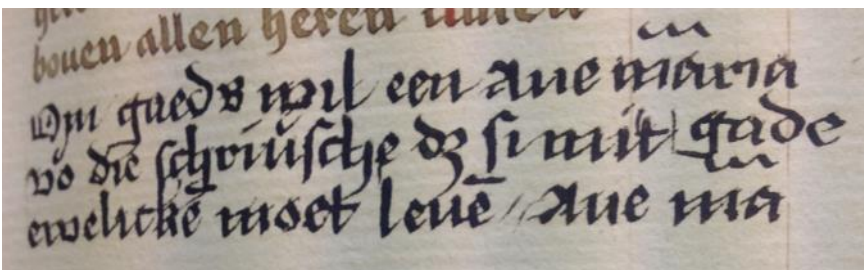 bouen allen heren
Om gaeds wil een aue maria
vo die schriuische dz si mit gade
ewelickē moet leuē // Aue ma